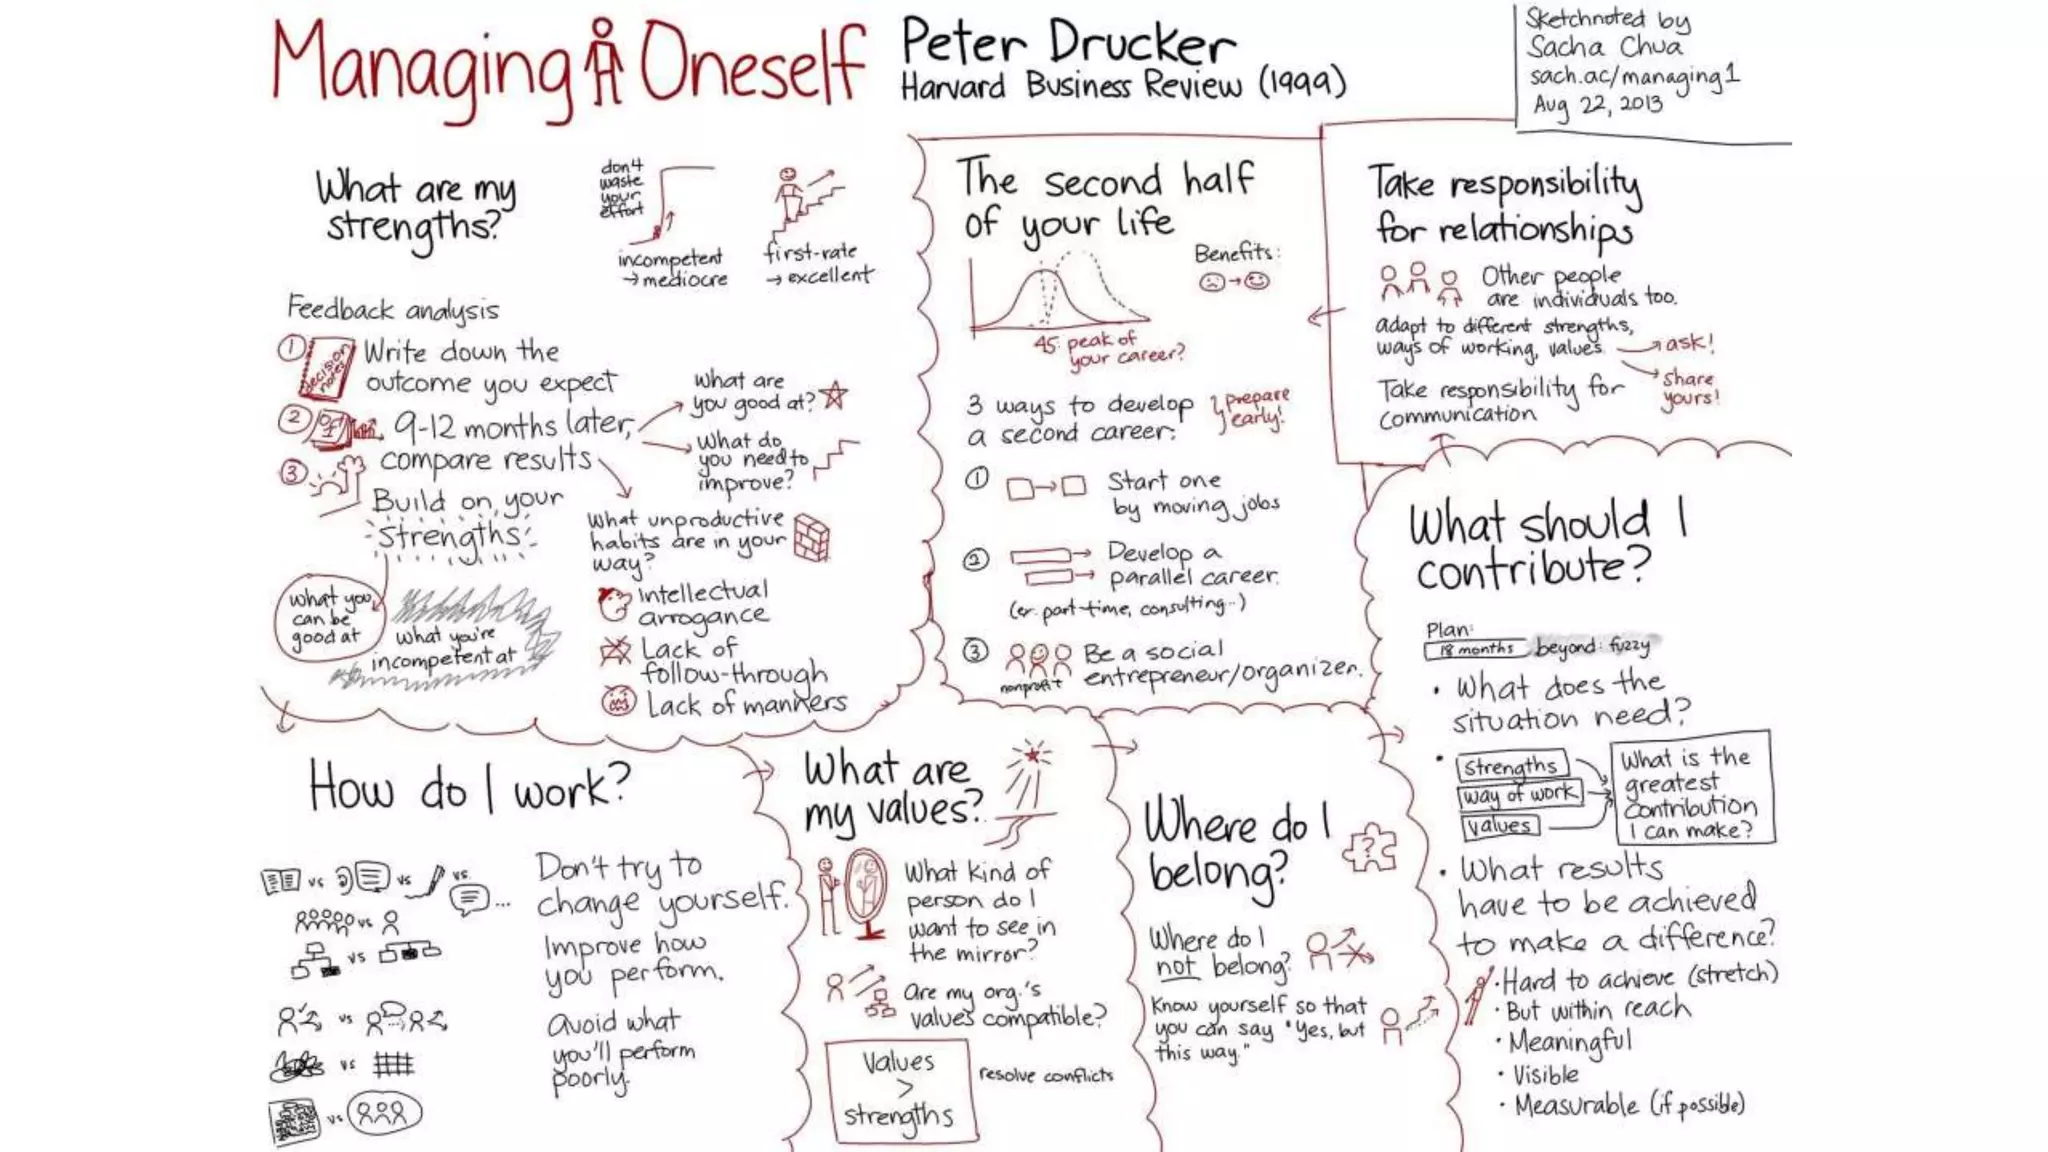 Managing Oneself
Peter Drucker
Harvard Business Review (1999)
Sketchnoted by
Sacha Chua
sach.ac/managing1
Aug 22, 2013
What are my
strengths?
don't
waste
your
effort
incompetent
→ mediocre
first-rate
→ excellent
Feedback analysis
1
decision
notes
Write down the
outcome you expect
2
9-12 months later,
compare results
What are
you good at?
What do
you need to
improve?
3
Build on your
strengths
What you
can be
good at
what you're
incompetent at
What unproductive
habits are in your
way?
intellectual
arrogance
Lack of
follow-through
Lack of manners
How do I work?
vs vs vs ...
vs
vs
vs
vs
vs
Don't try to
change yourself.
Improve how
you perform.
Avoid what
you'll perform
poorly.
What are
my values?
What kind of
person do I
want to see in
the mirror?
Are my org.'s
values compatible?
Values
>
strengths
resolve conflicts
The second half
of your life
Benefits:
45: peak of
your career?
3 ways to develop
a second career:
prepare
early!
1
Start one
by moving jobs
2
Develop a
parallel career.
(ex: part-time, consulting..)
3
nonprofit
Be a social
entrepreneur/organizer.
Where do I
belong?
?
Where do I
not belong?
Know yourself so that
you can say "Yes, but
this way."
Take responsibility
for relationships
Other people
are individuals too.
adapt to different strengths,
ways of working, values
→ ask!
share
yours!
Take responsibility for
communication
What should I
contribute?
Plan:
18 months beyond: fuzzy
• What does the
situation need?
• Strengths
way of work
values
What is the
greatest
contribution
I can make?
• What results
have to be achieved
to make a difference?
• Hard to achieve (stretch)
• But within reach
• Meaningful
• Visible
• Measurable (if possible)